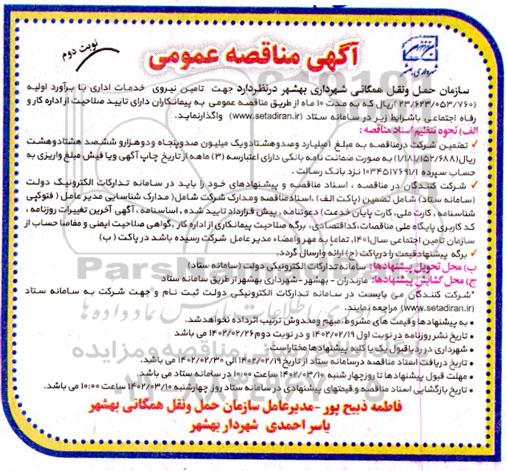 آگهی مناقصه عمومی
نوبت دوم
شهرداری بهشهر
سازمان حمل ونقل همگانی شهرداری بهشهر درنظردارد جهت تامین نیروی خدمات اداری با برآورد اولیه
(۲۳/۶۲۳/۰۵۳/۷۶۰) ریال که به مدت ۱۰ ماه از طریق مناقصه عمومی به پیمانکاران دارای تایید صلاحیت از اداره کار و
رفاه اجتماعی باشرایط زیر در سامانه ستاد (www.setadiran.ir) واگذارنماید.
الف) نحوه تنظیم اسناد مناقصه :
✓ تضمین شرکت درمناقصه به مبلغ ۱میلیارد وصدوهشتادویک میلیون صدوپنجاه ودوهزارو ششصد هشتادوهشت
ریال(۱/۱۸۱/۱۵۲/۶۸۸) به صورت ضمانت نامه بانکی دارای اعتبارسه (۳) ماهه از تاریخ چاپ آگهی ویا فیش مبلغ واریزی به
حساب سپرده ۱۰۳۴۵۱۷۶۹۱/۱ نزد بانک رسالت .
✓ شرکت کنندگان در مناقصه ، اسناد مناقصه و پیشنهادهای خود را باید در سامانه تدارکات الکترونیک دولت
(سامانه ستاد) شامل تضمین (پاکت الف) ،اسنادمناقصه ومدارک شرکت شامل( مدارک شناسایی مدیر عامل ( فتوکپی
شناسنامه ، کارت ملی، کارت پایان خدمت) دعوتنامه ، پیش قرارداد تایید شده ، اساسنامه ، آگهی آخرین تغییرات روزنامه ،
کد کاربری پایگاه ملی مناقصات،کداقتصادی، برگه صلاحیت پیمانکاری ازاداره کار ،گواهی صلاحیت ایمنی و مفاصا حساب از
سازمان تامین اجتماعی سال۱۴۰۱، تماما به مهر وامضاء مدیر عامل شرکت رسیده باشد در پاکت (ب)
✓ برگه پیشنهادقیمت رادرپاکت (ج) ارائه وارسال گردد.
ب) محل تحویل پیشنهادها: سامانه تدارک الکترونیکی دولت (سامانه ستاد)
ج) محل گشایش پیشنهادها: مازندران - بهشهر- شهرداری بهشهر از طریق سامانه ستاد
*شرکت کنندگان می بایست در سامانه تدارکات الکترونیکی دولت ثبت نام و جهت شرکت به سامانه ستاد
(www.setadiran.ir) مراجعه نمایند.
• به پیشنهادها و قیمت های مشروط، مبهم ومخدوش ترتیب اثرداده نخواهدشد.
• تاریخ نشر روزنامه در نوبت اول ۱۴۰۲/۰۲/۱۹ و در نوبت دوم ۱۴۰۲/۰۲/۲۶
شهرداری در ردیاقبول یک یا کلیه پیشنهادها مختاراست.
• تاریخ دریافت اسناد مناقصه درسامانه ستاد از تاریخ ۱۴۰۲/۰۲/۱۹ الی ۱۴۰۲/۰۲/۳۰ می باشد.
• مهلت قبول پیشنهادها تا روزچهار شنبه ۱۴۰۲/۰۳/۱۰ ساعت ۱۰:۰۰ در سامانه ستاد می باشد.
• تاریخ بازگشایی اسناد مناقصه و قیمتهای پیشنهادی در سامانه ستاد روز چهارشنبه ۱۴۰۲/۰۳/۱۰ ساعت ۱۰:۰۰ می باشد.
فاطمه ذبیح پور -مدیرعامل سازمان حمل ونقل همگانی بهشهر
یاسر احمدی شهردار بهشهر